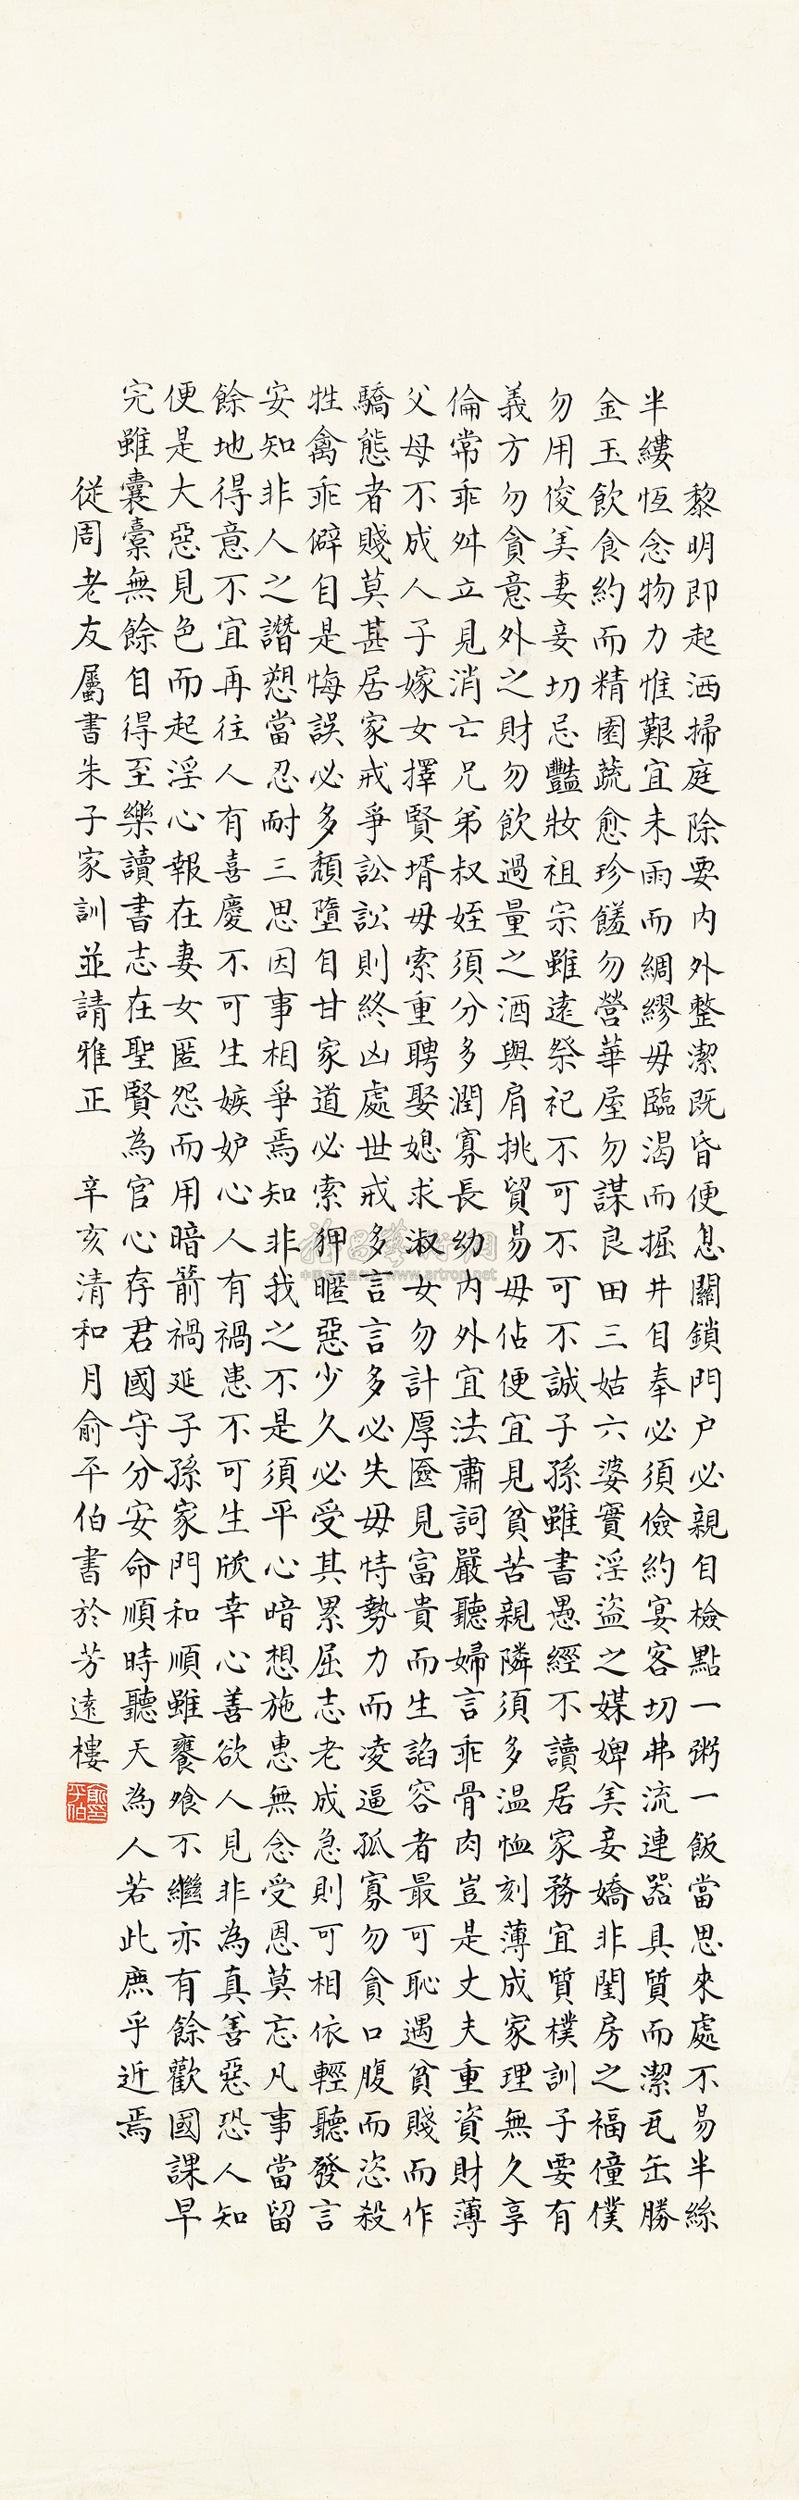 黎明即起洒掃庭除要内外整潔既昏便息關鎖門户必親自檢點一粥一飯當思來處不易半絲
半縷恆念物力惟艱宜未雨而綢繆毋臨渴而掘井自奉必須儉約宴客切弗流連器具質而潔瓦缶勝
金玉飲食約而精園蔬愈珍饈勿營華屋勿謀良田三姑六婆實淫盜之媒婢美妾嬌非閨房之福僮僕
勿用俊美妻妾切忌豔妝祖宗雖遠祭祀不可不可不誠子孫雖書愚經不讀居家務宜質樸訓子要有
義方勿貪意外之財勿飲過量之酒與肩挑貿易毋佔便宜見貧苦親隣須多温恤刻薄成家理無久享
倫常乖舛立見消亡兄弟叔姪須分多潤寡長幼内外宜法肅詞嚴聽婦言乖骨肉豈是丈夫重資財薄
父母不成人子嫁女擇賢壻毋索重聘娶媳求淑女勿計厚匳見富貴而生諂容者最可恥遇貧賤而作
驕態者賤莫甚居家戒爭訟訟則終凶處世戒多言言多必失毋恃勢力而凌逼孤寡勿貪口腹而恣殺
牲禽乖僻自是悔誤必多頹墮自甘家道必索狎暱惡少久必受其累屈志老成急則可相依輕聽發言
安知非人之譖愬當忍耐三思因事相爭焉知非我之不是須平心暗想施惠無念受恩莫忘凡事當留
餘地得意不宜再往人有喜慶不可生嫉妒心人有禍患不可生欣幸心善欲人見非為真善惡恐人知
便是大惡見色而起淫心報在妻女匿怨而用暗箭禍延子孫家門和順雖饔飧不繼亦有餘歡國課早
完雖囊橐無餘自得至樂讀書志在聖賢為官心存君國守分安命順時聽天為人若此庶乎近焉
從周老友屬書朱子家訓並請雅正 辛亥清和月俞平伯書於芳遠樓